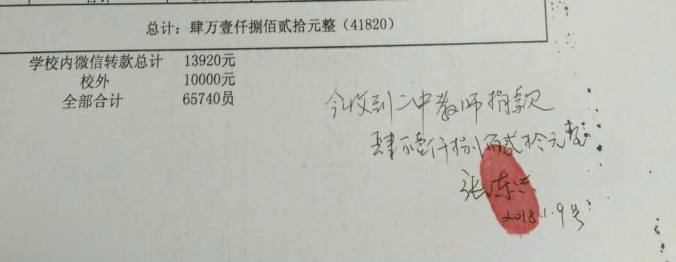 总计：肆万壹仟捌佰贰拾元整（41820）
学校内微信转款总计 13920元
校外 10000元
全部合计 65740员
今收到二中教师捐款
肆万壹仟捌佰贰拾元整
张
2018.1.9号